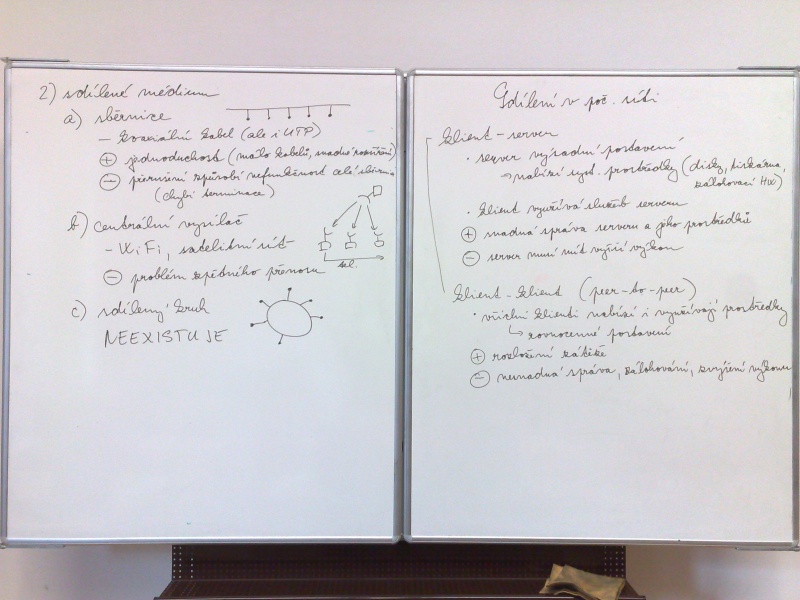 2) sdílené médium
a) sběrnice
- koaxiální kabel (ale i UTP)
⊕ jednoduchost (málo kabelů, snadné rozšíření)
⊖ přerušení způsobí nefunkčnost celé sběrnice
(chybí terminace)
b) centrální vysílač
- WiFi, satelitní síť
⊖ problém zpětného přenosu
sel.
c) sdílený kruh
NEEXISTUJE
Sdílení v poč. síti
klient-server
· server výsadní postavení
→ nabízí syst. prostředky (disky, tiskárna,
zálohovací HW)
· klient využívá služeb serveru
⊕ snadná správa serveru a jeho prostředků
⊖ server musí mít vyšší výkon
klient-klient (peer-to-peer)
· všichni klienti nabízí i využívají prostředky
↳ rovnocenné postavení
⊕ rozložení zátěže
⊖ nesnadná správa, zálohování, zvýšení výkonu